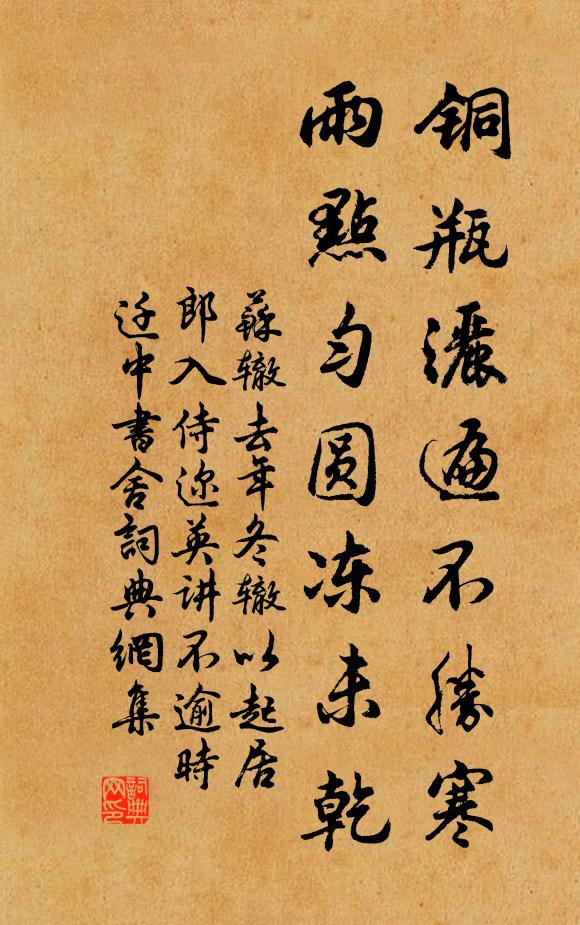 铜瓶灑遍不勝寒
雨點匀圆冻未乾
蘇辙去年冬辙以起居
郎入侍迩英讲不逾時
迁中書舍詞典網集
詞典网印